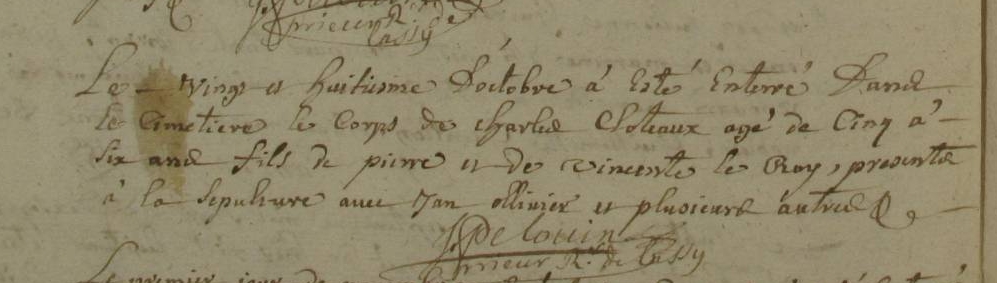 prieur R. de
Cassy
Le vingt et huitiesme D'octobre à Esté Enterré Dans
le Cimetiere le Corps de Charles Choteaux agé de Cinq à
Six ans fils de pierre et de vincente le Roy, presents
à la Sepulture avec Jan ollivier et plusieurs autres
Delouin
prieur R. de Cassy
Le premier jour de